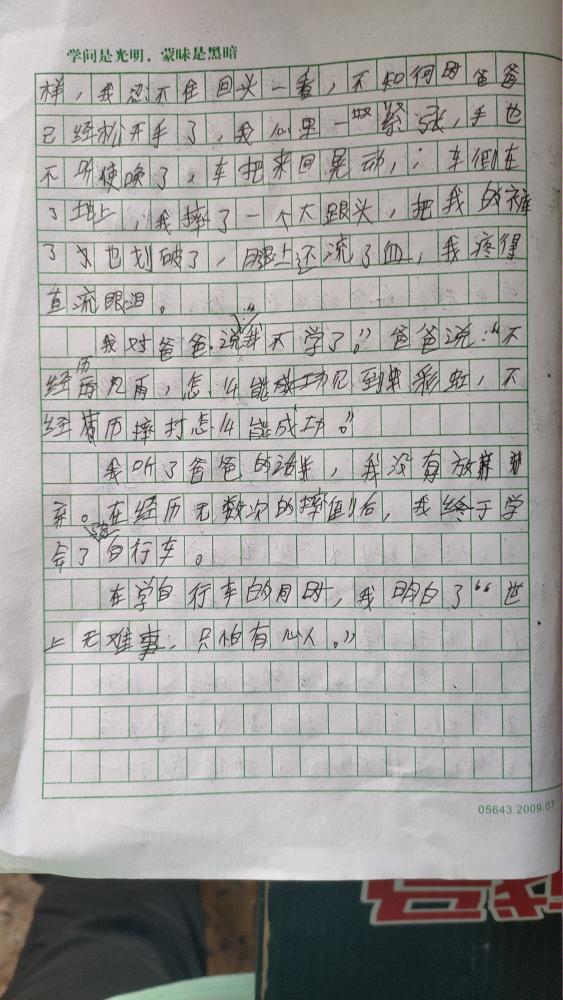 学问是光明，蒙昧是黑暗
样，我忍不住回头一看，不知何时爸爸
已经松开手了，我心里一紧张，手也
不听使唤了，车把来回晃动，；车倒在
了地上，我摔了一个大跟头，把我的裤
了也划破了，腿上还流了血，我疼得
直流眼泪。
我对爸爸说“我不学了。”爸爸说：“不
经历风雨，怎么能见到彩虹，不
经历摔打怎么能成功。”
我听了爸爸的话，我没有放
弃。在经历无数次的摔倒后，我终于学
会了骑自行车。
在学自行车的同时，我明白了“世
上无难事，只怕有心人。”
05643.2009.07